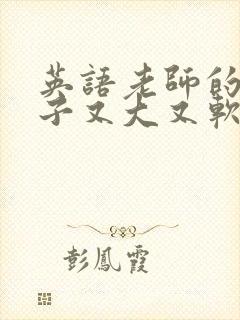 英語老師的
子又大又軟
彭鳳霞